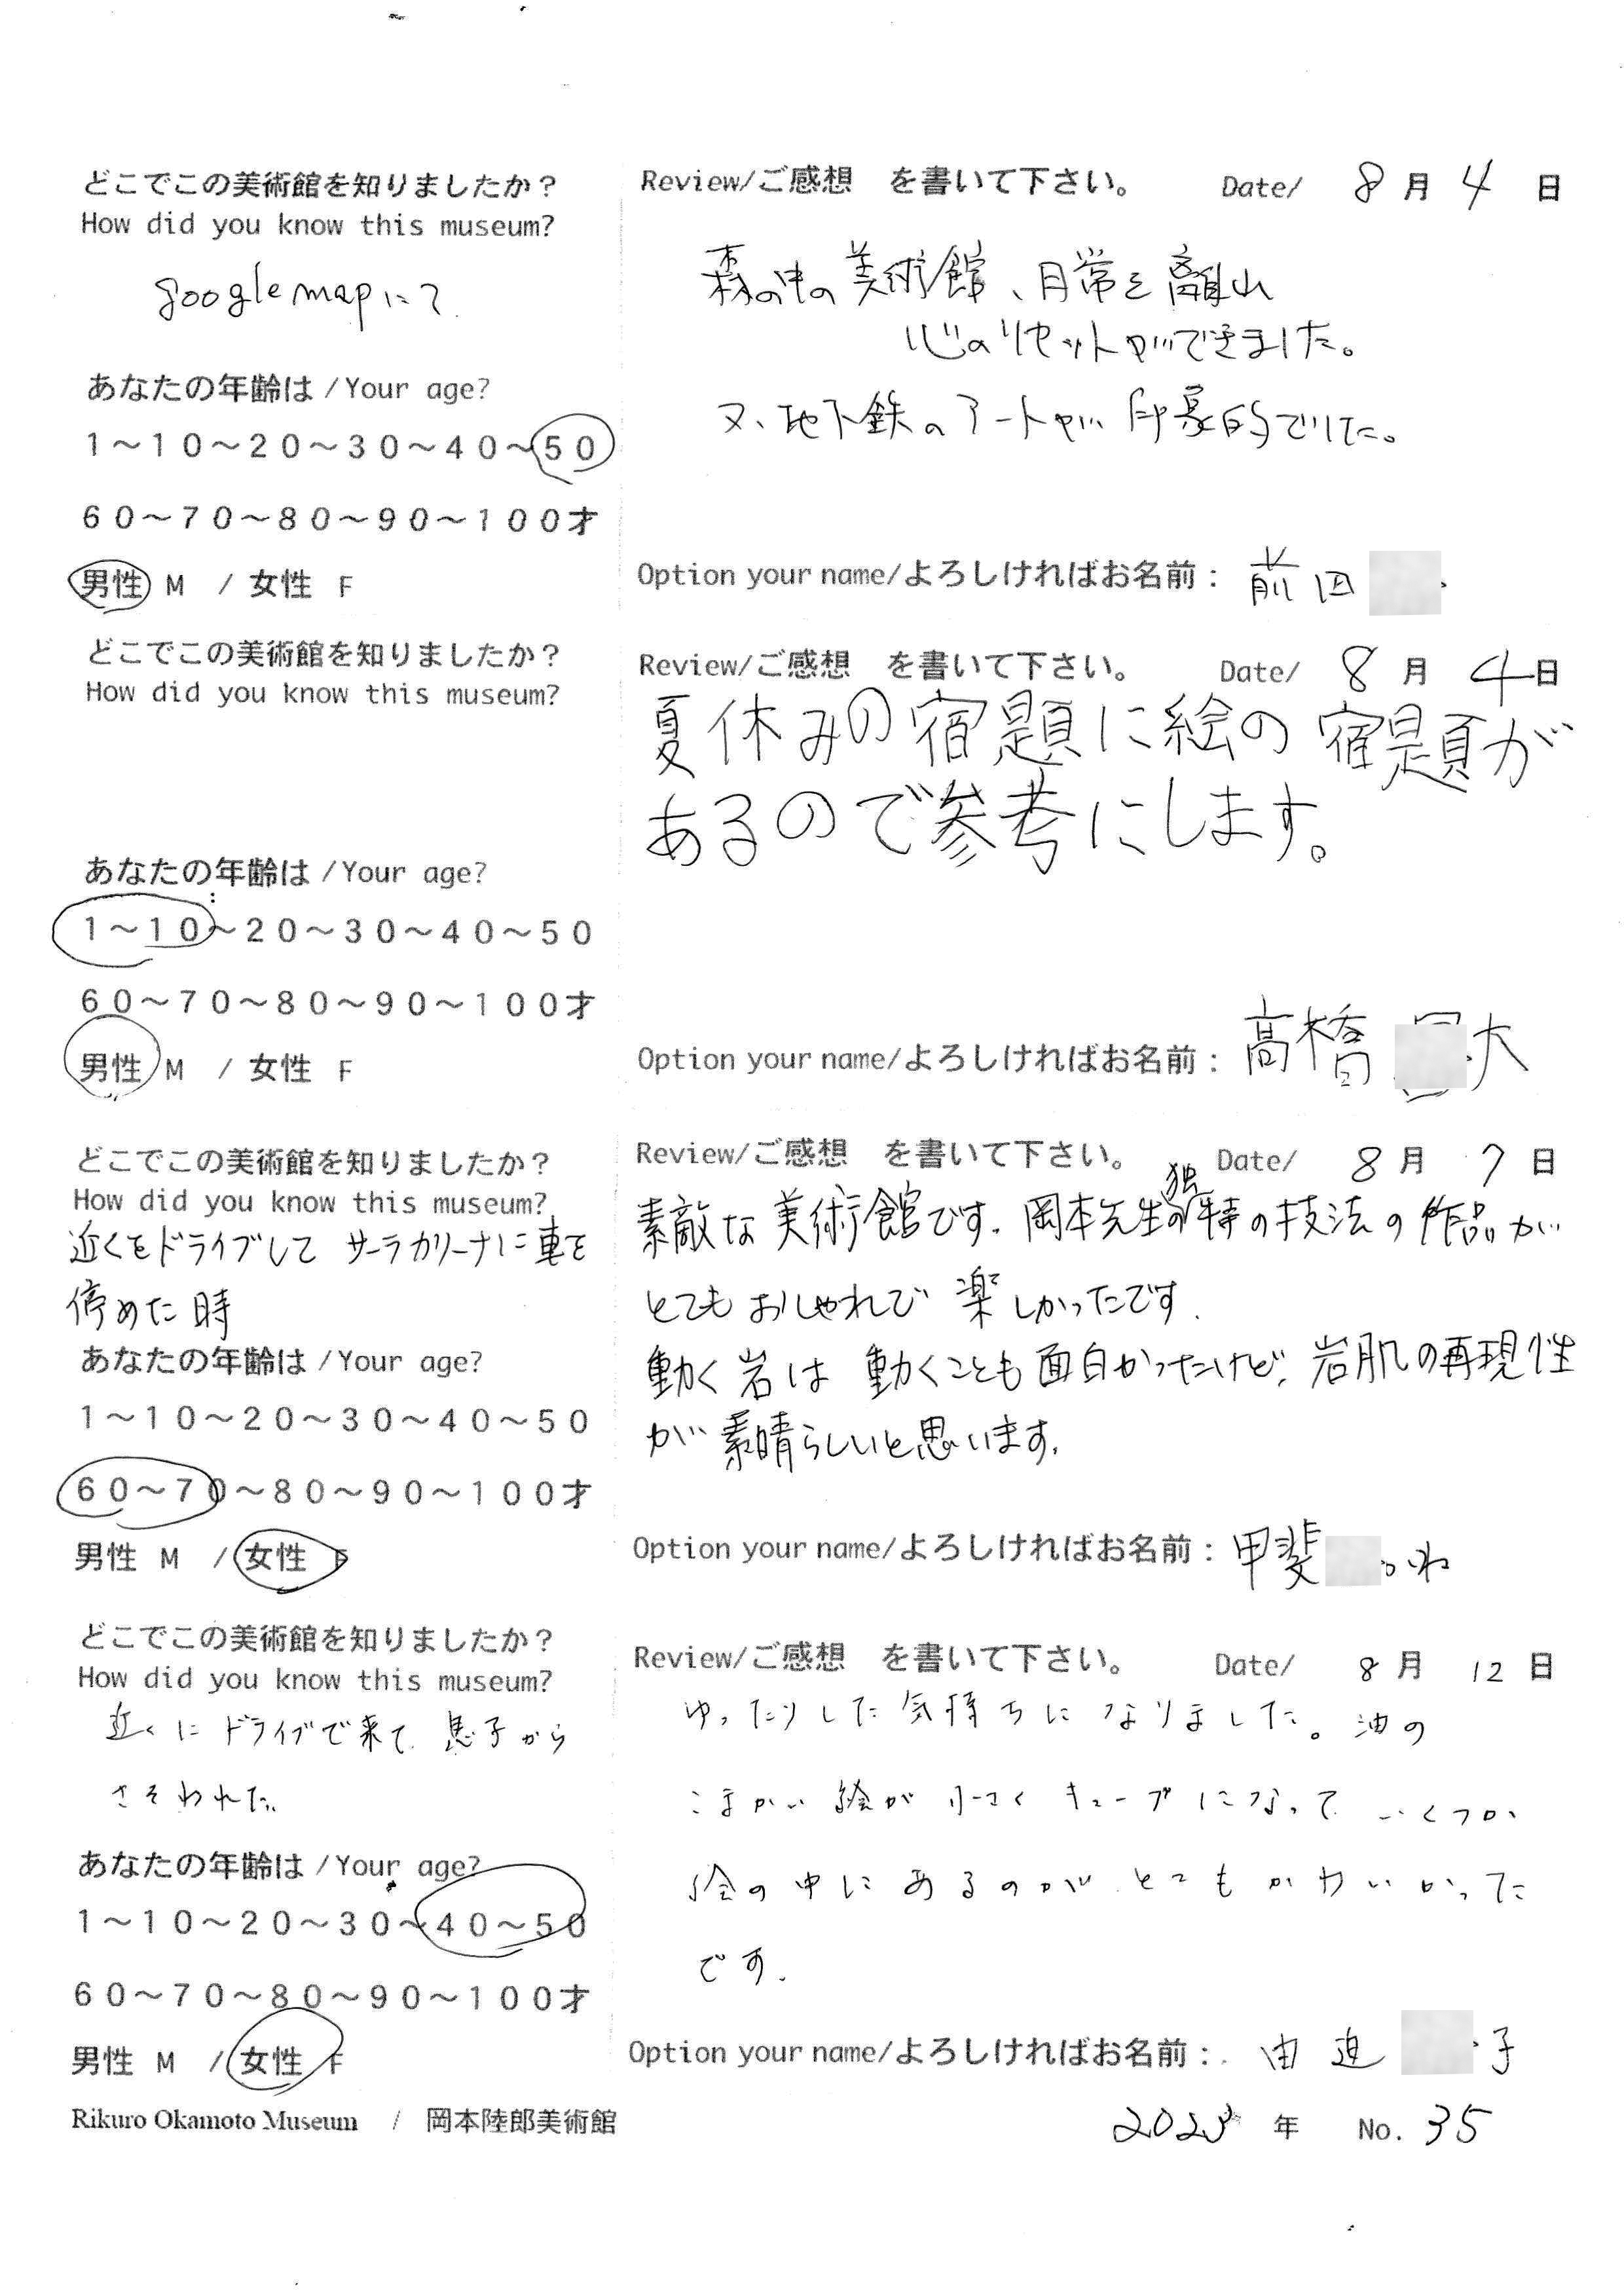 どこでこの美術館を知りましたか？
How did you know this museum?
googlemapにて
あなたの年齢は /Your age?
1～10～20～30～40～50
60～70～80～90～100才
男性 M / 女性 F
Review/ご感想 を書いて下さい。 Date/ 8月4日
森の中の美術館、日常を離れ
心のリセットができました。
又、地下鉄のアートが印象的でした。
Option your name/よろしければお名前： 前田
どこでこの美術館を知りましたか？
How did you know this museum?
あなたの年齢は /Your age?
1～10～20～30～40～50
60～70～80～90～100才
男性 M / 女性 F
Review/ご感想 を書いて下さい。 Date/ 8月4日
夏休みの宿題に絵の宿題が
あるので参考にします。
Option your name/よろしければお名前： 高橋 大
どこでこの美術館を知りましたか？
How did you know this museum?
近くをドライブして サーラカリーナに車を
停めた時
あなたの年齢は /Your age?
1～10～20～30～40～50
60～70～80～90～100才
男性 M / 女性 F
Review/ご感想 を書いて下さい。 Date/ 8月7日
素敵な美術館です。岡本先生の独特の技法の作品が
とてもおしゃれで楽しかったです。
動く岩は動くことも面白かったけど、岩肌の再現性
が素晴らしいと思います。
Option your name/よろしければお名前： 甲斐 ね
どこでこの美術館を知りましたか？
How did you know this museum?
近くにドライブで来て 息子から
さそわれた。
あなたの年齢は /Your age?
1～10～20～30～40～50
60～70～80～90～100才
男性 M / 女性 F
Review/ご感想 を書いて下さい。 Date/ 8月12日
ゆったりした気持ちになりました。油の
こまかい絵が小さくキューブになって いくつか
絵の中にあるのが とてもかわいかった
です。
Option your name/よろしければお名前： 子
Rikuro Okamoto Museum / 岡本陸郎美術館
2023年 No. 35